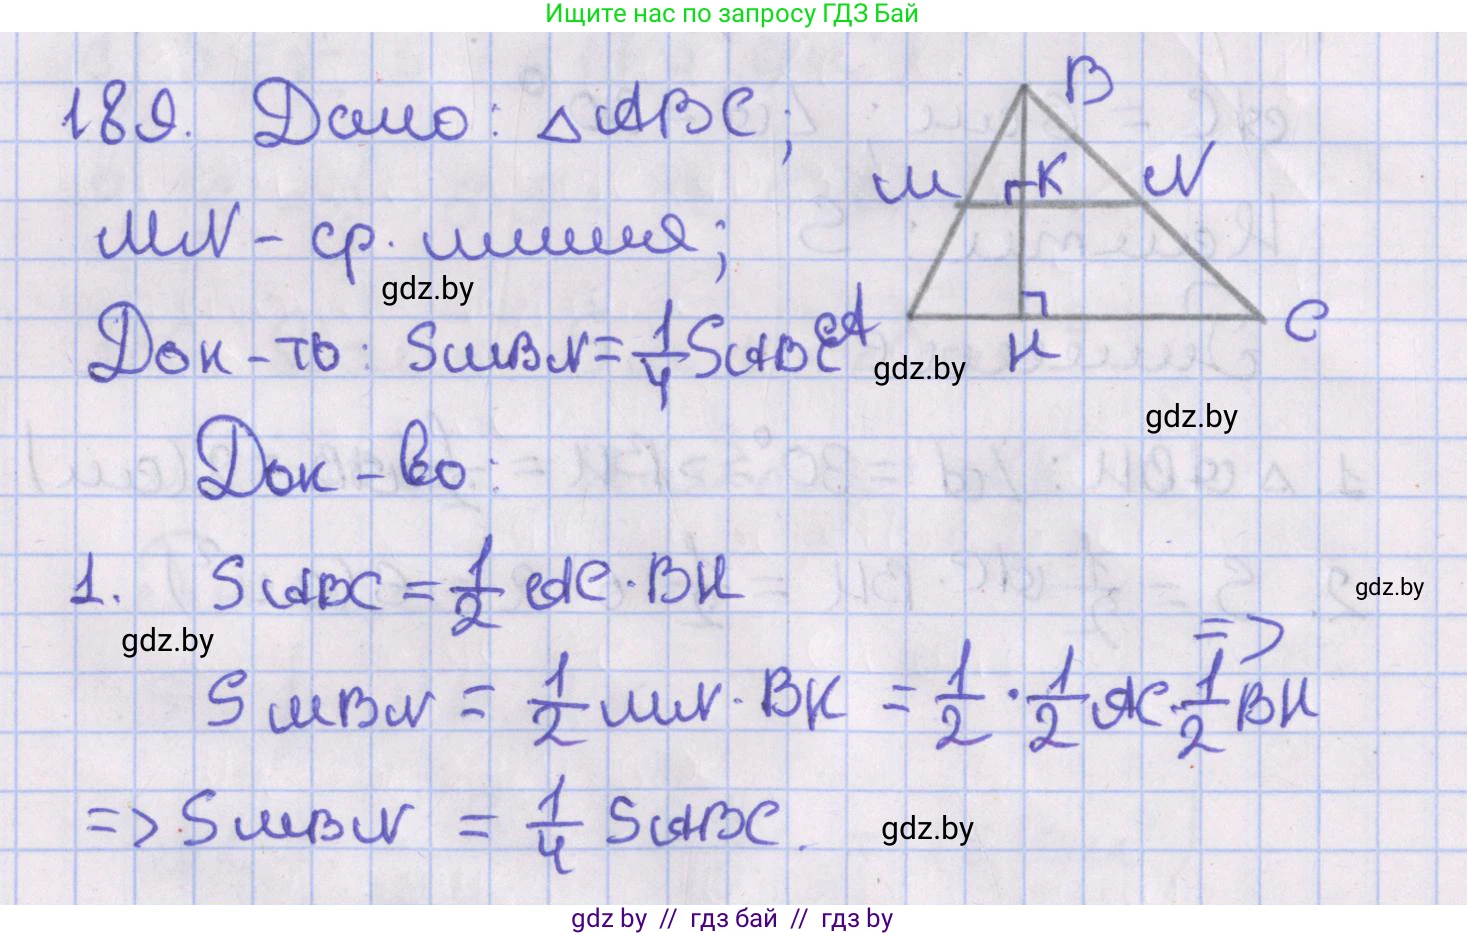 Ищите нас по запросу ГДЗ Бай
189. Дано: △ABC;
MN - ср. линия;
gdz.by
Док-ть: SMBN = 1/4 SABC
B
M K N
A H C
gdz.by
gdz.by
Док-во:
1. SABC = 1/2 AC · BH
gdz.by
gdz.by
=>
SMBN = 1/2 MN · BK = 1/2 · 1/2 AC · 1/2 BH
=> SMBN = 1/4 SABC.
gdz.by
gdz by // гдз бай // гдз by